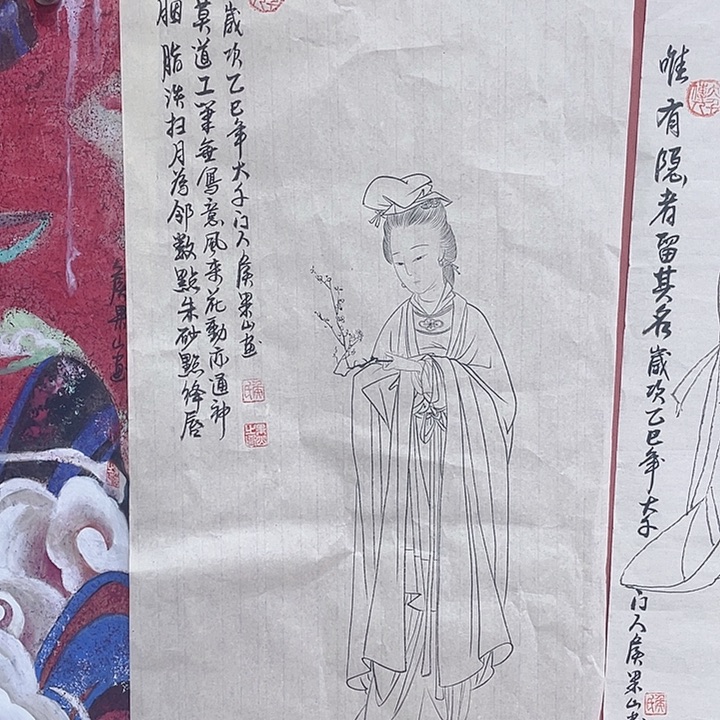 侯果山画
胭脂淡扫月為邻數點朱砂點绛唇
莫道工筆無寫意風来花動亦通神
歲次乙巳年大千门人侯果山画
唯有隐者留其名歲次乙巳年大千
门人侯果山画